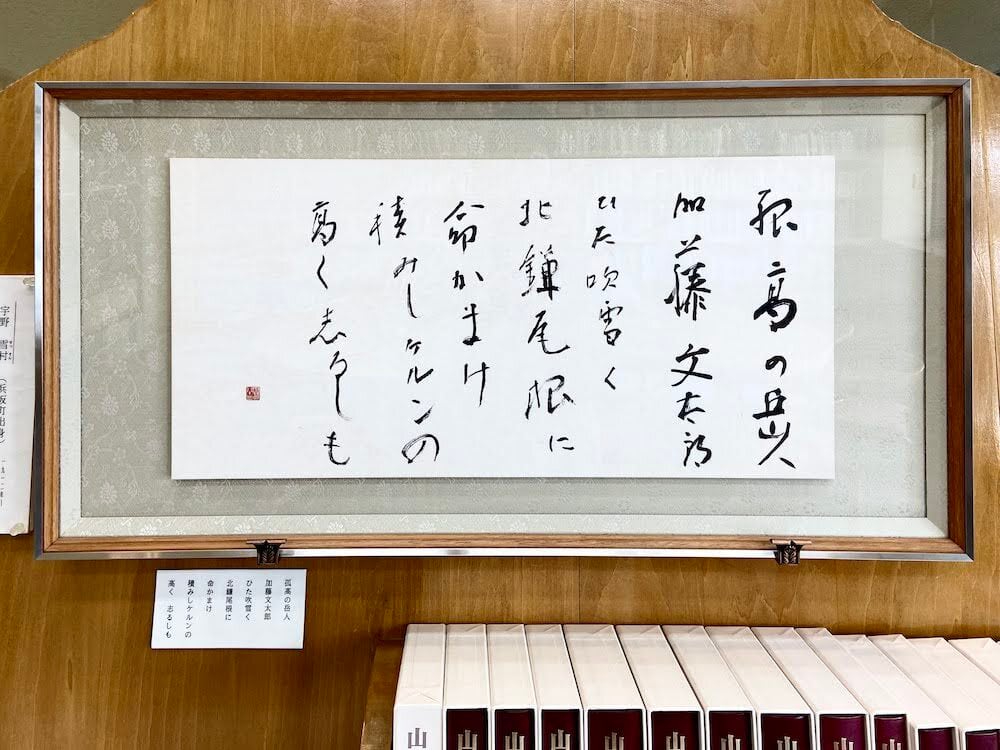 孤高の岳人
加藤文太郎
ひた吹雪く
北鎌尾根に
命かまけ
積みしケルンの
高く志るしも
孤高の岳人
加藤文太郎
ひた吹雪く
北鎌尾根に
命かまけ
積みしケルンの
高く 志るしも
宇野 雪村 (浜坂町出身)
山
山
山
山
山
山
山
山
山
山
山